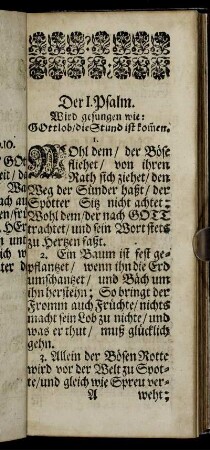 Der I. Psalm.
Wird gesungen wie:
GOttlob/die Stund ist kom̃en.
1.
WOhl dem/ der Böse
fliehet/ von ihren
Rath sich ziehet/den
Weg der Sünder haßt/ der
Spötter Sitz nicht achtet:
Wohl dem/der nach GOTT
trachtet/ und sein Wort stets
zu Hertzen faßt.
2. Ein Baum ist fest ge-
pflantzet/ wenn ihn die Erd
umschantzet/ und Bäch um
ihn herstehn; So bringt der
Fromm auch Früchte/ nichts
macht sein Lob zu nichte/ und
was er thut/ muß glücklich
gehn.
3. Allein der Bösen Rotte
wird vor der Welt zu Spot-
te/und gleich wie Spreu ver-
A weht;